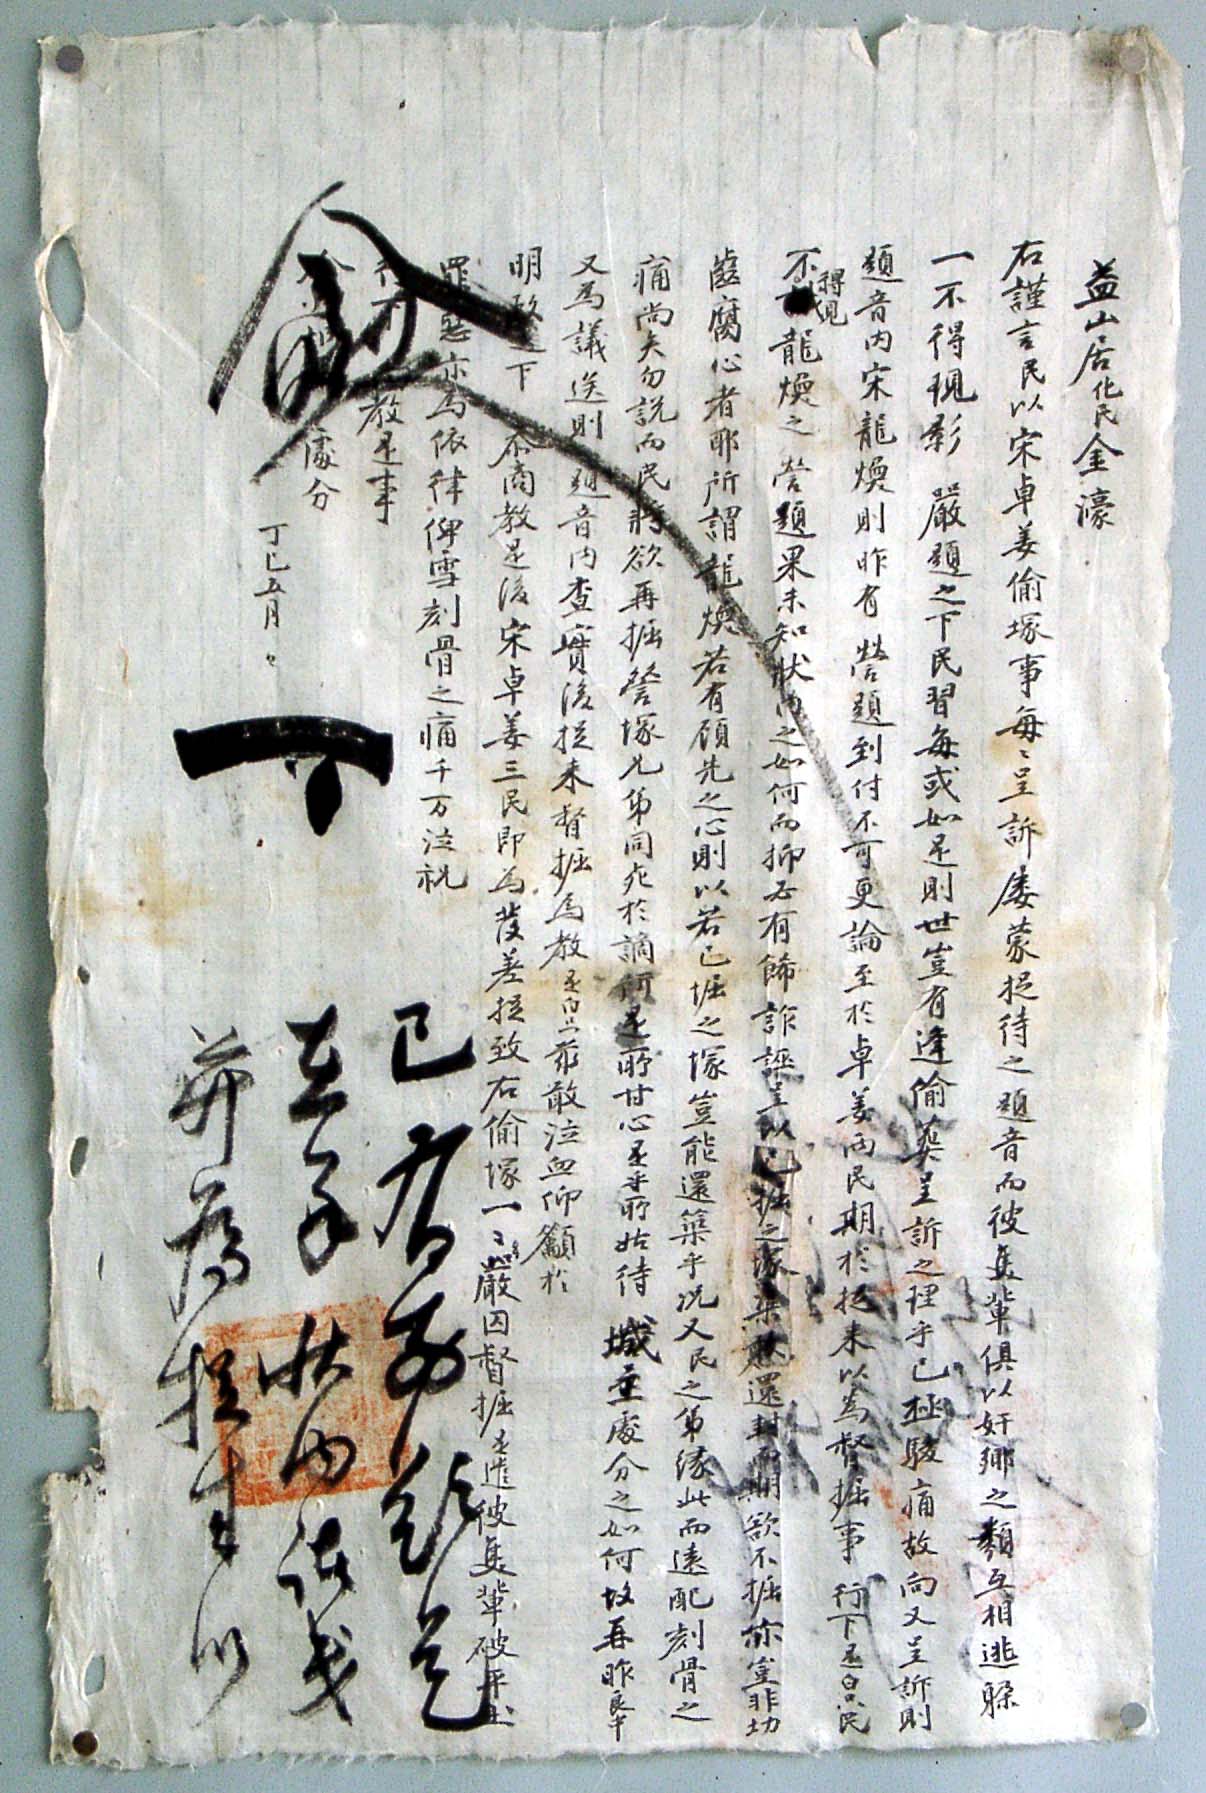 益山居化民金濠
右謹言民以宋卓姜偷塚事每〻呈訴屢蒙捉待之題音而彼隻輩俱以奸鄕之類互相逃躱
一不得現影 嚴題之下民習每或如是則世豈有逢偷葬呈訴之理乎已極駭痛故向又呈訴則
題音內宋龍煥則昨有 營題到付不可更論至於卓姜兩民期於捉來以爲督掘事 行下是白乃民
不得見龍煥之 營題果未知狀內之如何而抑必有飾詐誣呈以已掘之塚 還封而期欲不掘亦豈非切
齒腐心者耶所謂龍煥若有顧先之心則以若已掘之塚豈能還築乎况又民之弟緣此而遠配刻骨之
痛尙矣勿說而民將欲再掘 塚兄弟同死於謫所是所甘心是乎所姑待 城主處分之如何故再昨良中
又爲議送則 題音內查實後捉來督掘爲敎是白 玆敢泣血仰籲於
明 下 商敎是後宋卓姜三民卽爲發差捉致右偷塚一〻嚴囚督掘是遣彼隻輩破
罪惡亦爲依律俾雪刻骨之痛千万泣祝
行下 敎是事
處分
丁巳五月
已有前題是
在果狀內諸民
幷爲捉來向